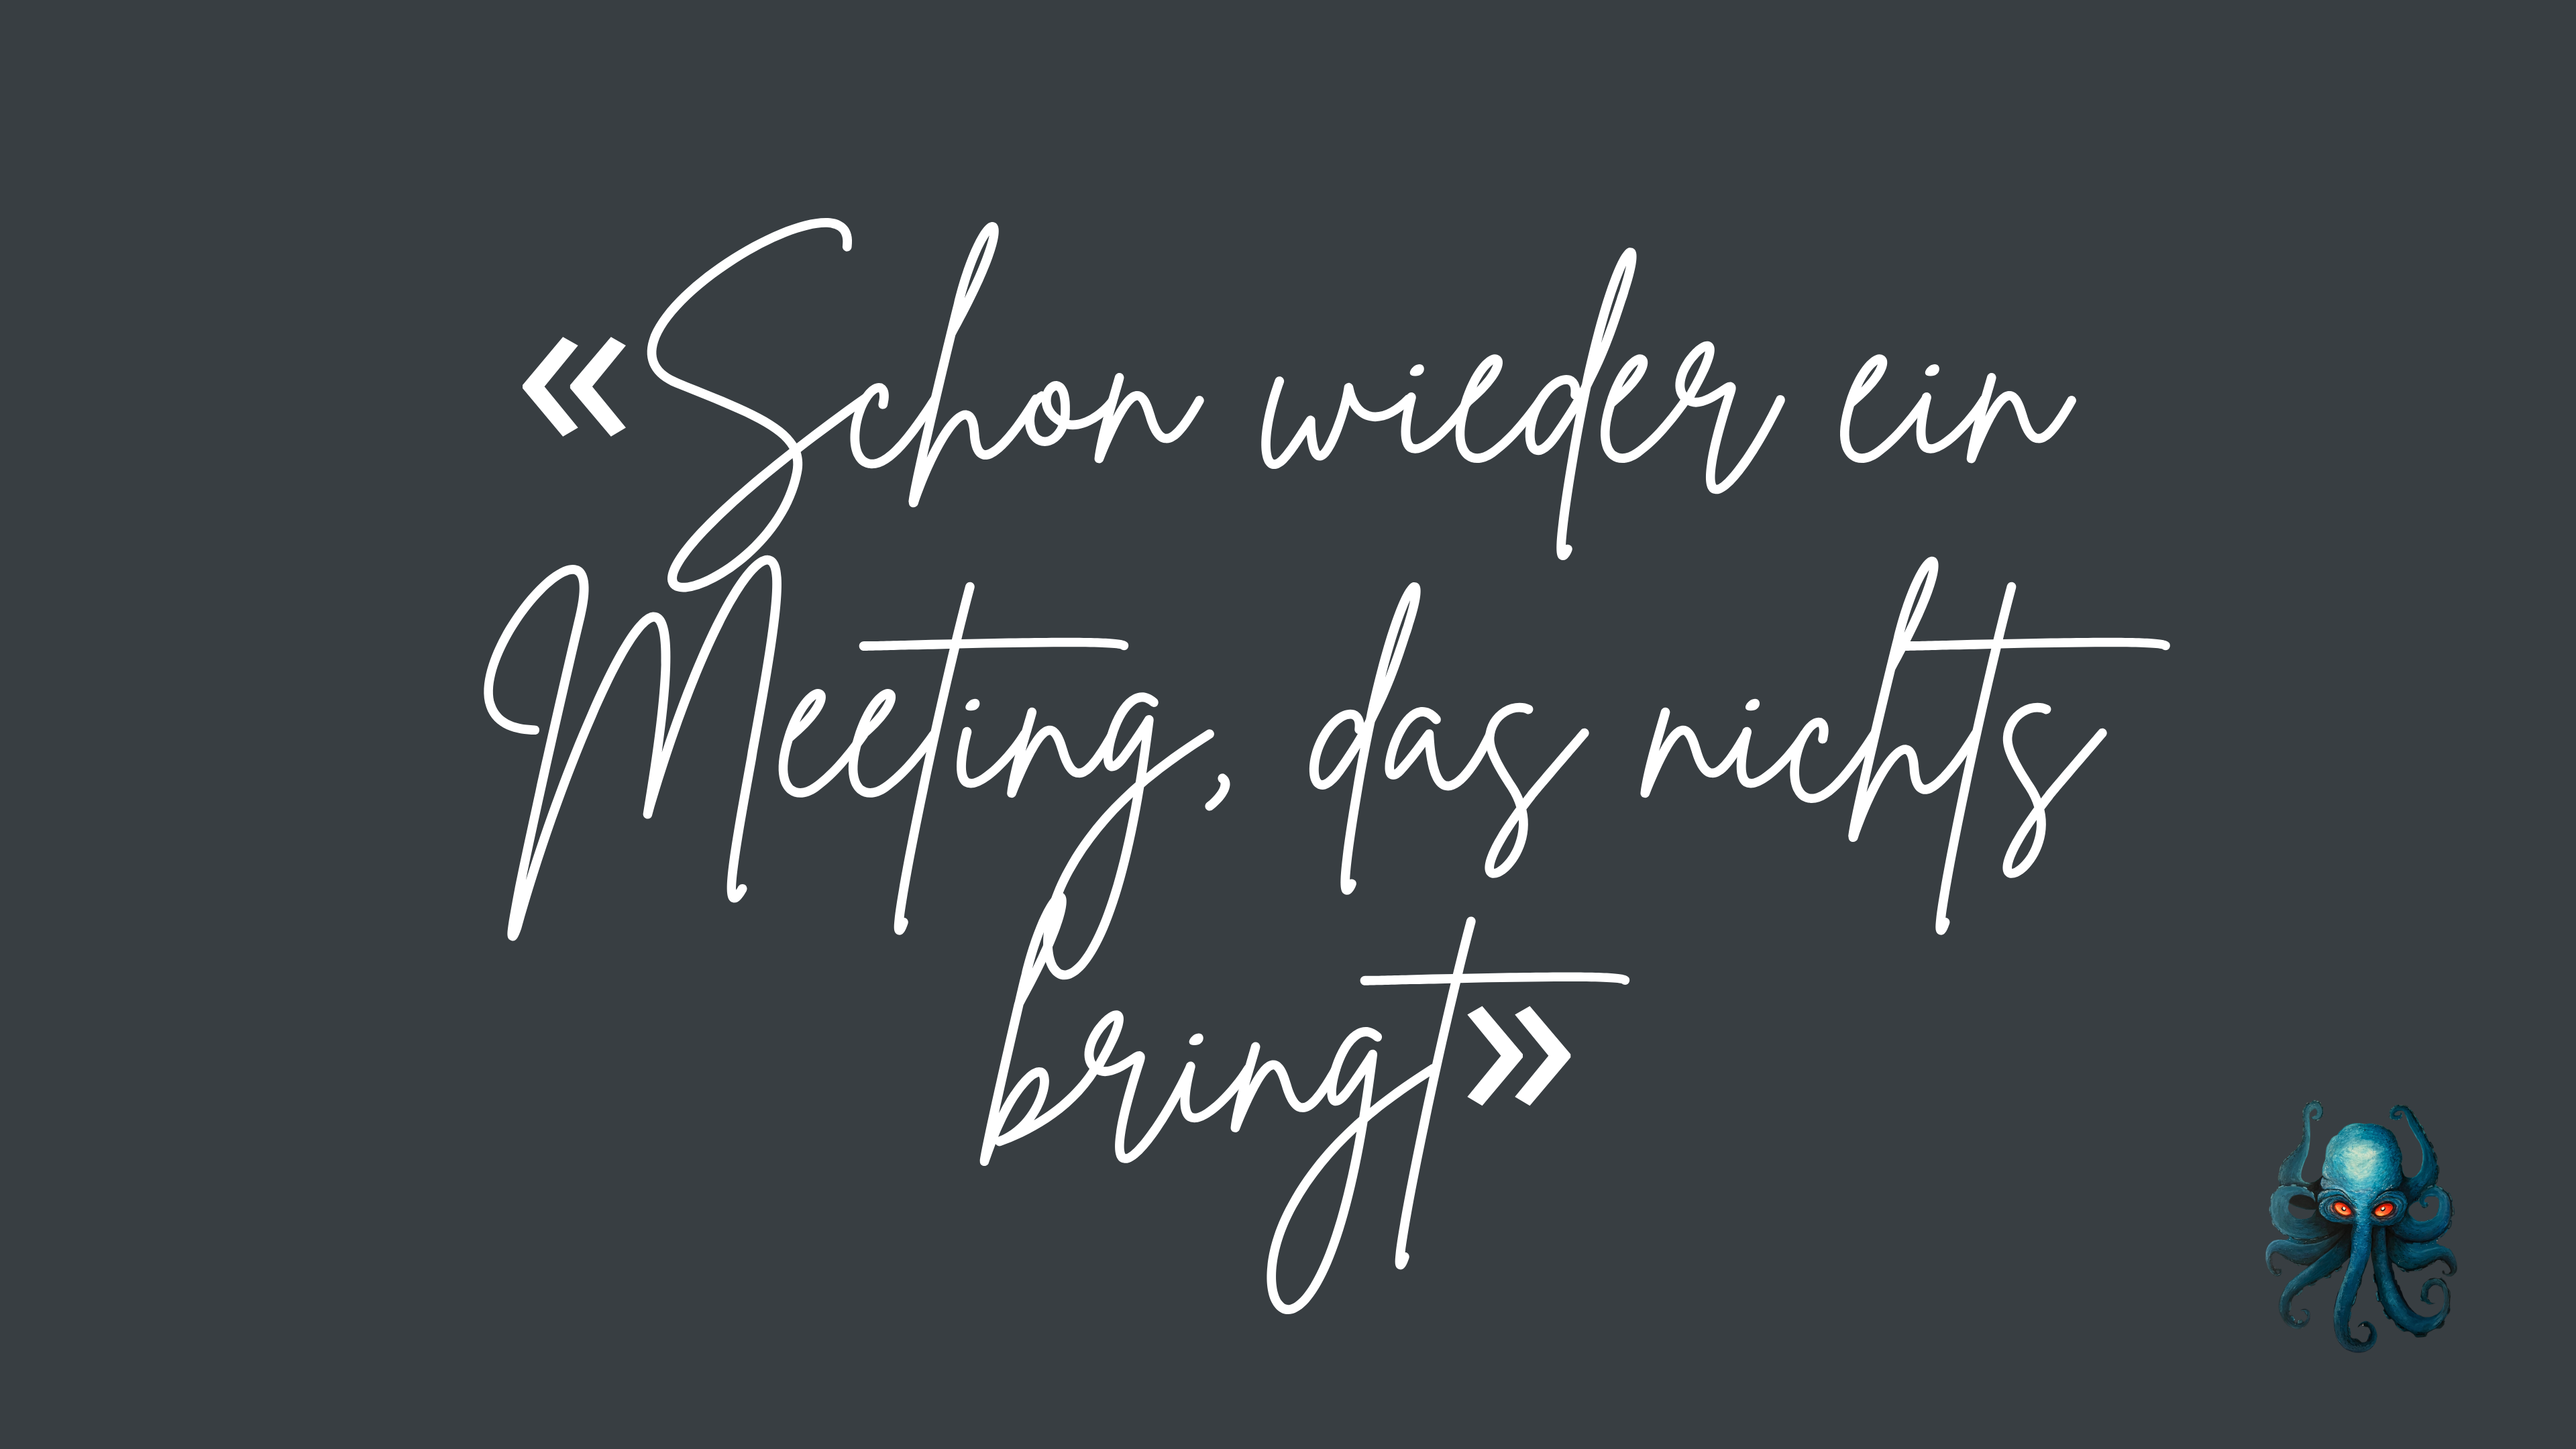 «Schon wieder ein
Meeting, das nichts
bringt»